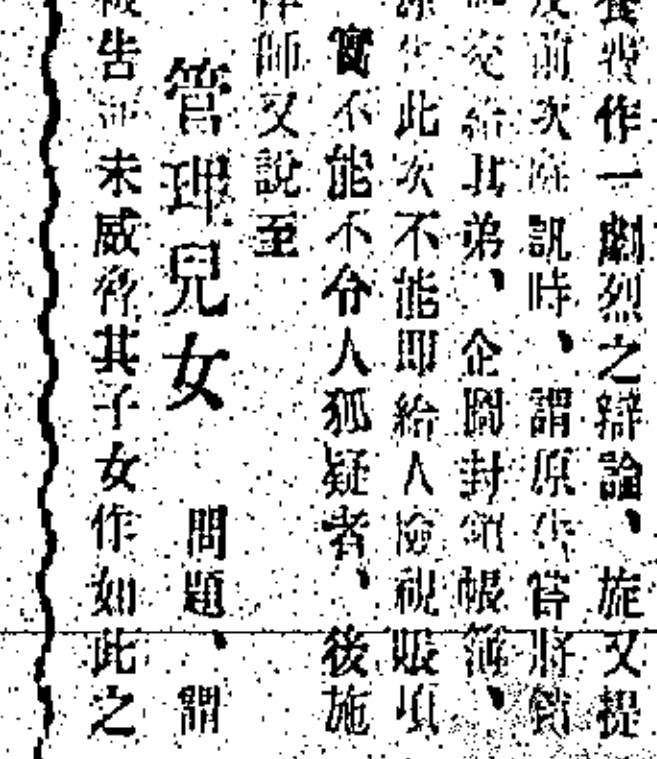 養費作一劇烈之辯論、旋又提
及前次庭訊時、謂原告嘗將鎖
交給其弟、企圖封鎖帳簿、
此次不能即給人檢視賬項
實不能不令人狐疑者、後施
律師又說至
管理兒女問題、謂
被告並未威脅其子女作如此之